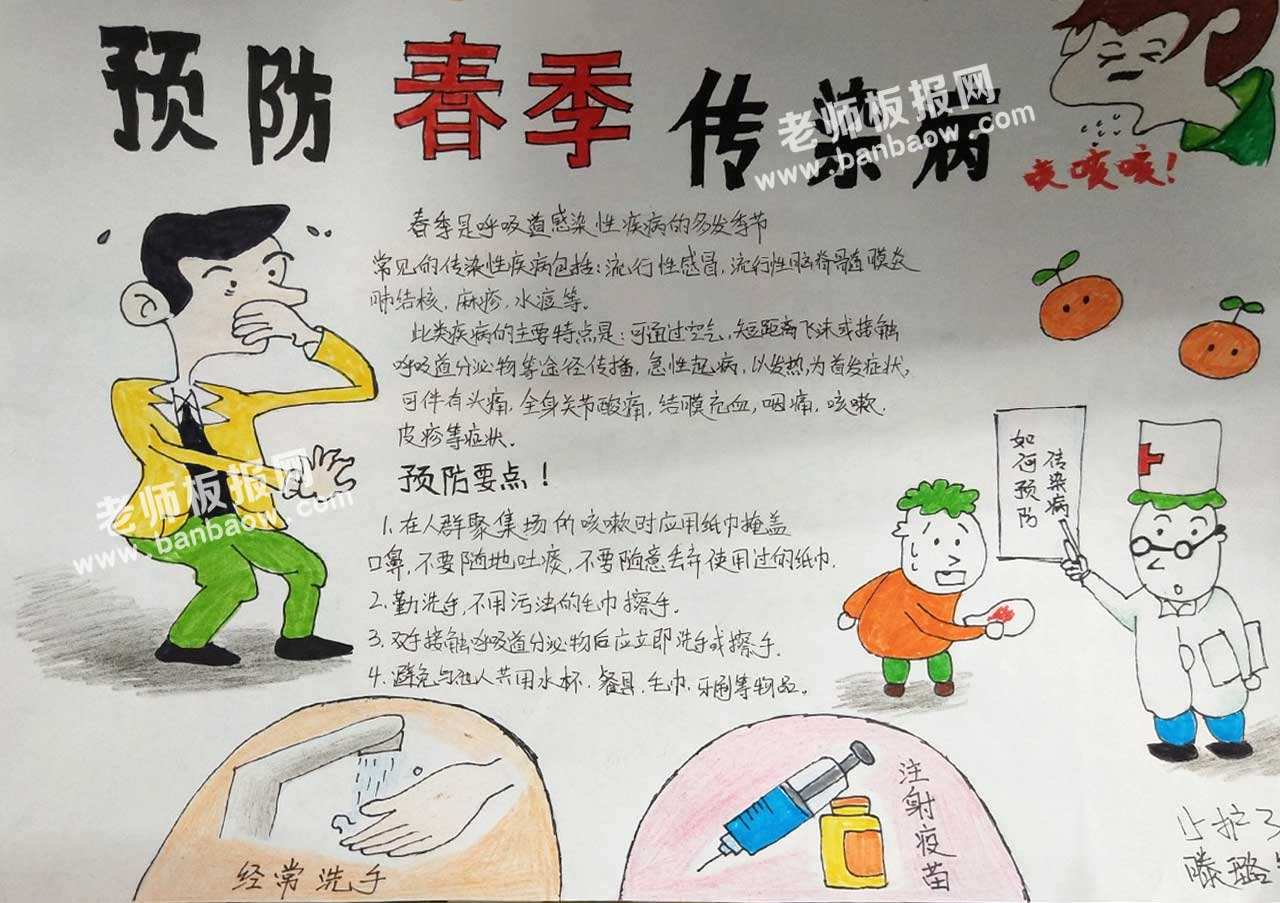 预防春季传染病
老师板报网
www.banbaow.com
咳咳咳！
春季是呼吸道感染性疾病的多发季节
常见的传染性疾病包括：流行性感冒，流行性脑脊髓膜炎
肺结核，麻疹，水痘等。
此类疾病的主要特点是：可通过空气，短距离飞沫或接触
呼吸道分泌物等途径传播，急性起病，以发热为首发症状，
可伴有头痛，全身关节酸痛，结膜充血，咽痛，咳嗽，
皮疹等症状。
预防要点！
1.在人群聚集场所咳嗽时应用纸巾掩盖
口鼻，不要随地吐痰，不要随意丢弃使用过的纸巾.
2.勤洗手，不用污浊的毛巾擦手.
3.双手接触呼吸道分泌物后应立即洗手或擦手.
4.避免与他人共用水杯.餐具.毛巾.牙刷等物品。
如何预防
传染病
老师板报网
www.banbaow.com
经常洗手
注射疫苗
小护
滕璐